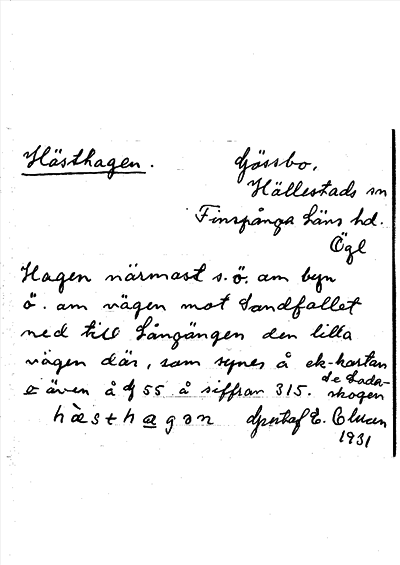 Hästhagen.
Gössbo,
Hällestads sn
Finspånga läns hd.
Ögl
Hagen närmast s.ö. om byn
ö. om vägen mot Sandfallet
ned till Långängen den lilla
vägen där, som synes å ek-kartan
o även å 55 å siffran 315.
de Lada-
skogen
hàsthagən
Gustaf E.
1931